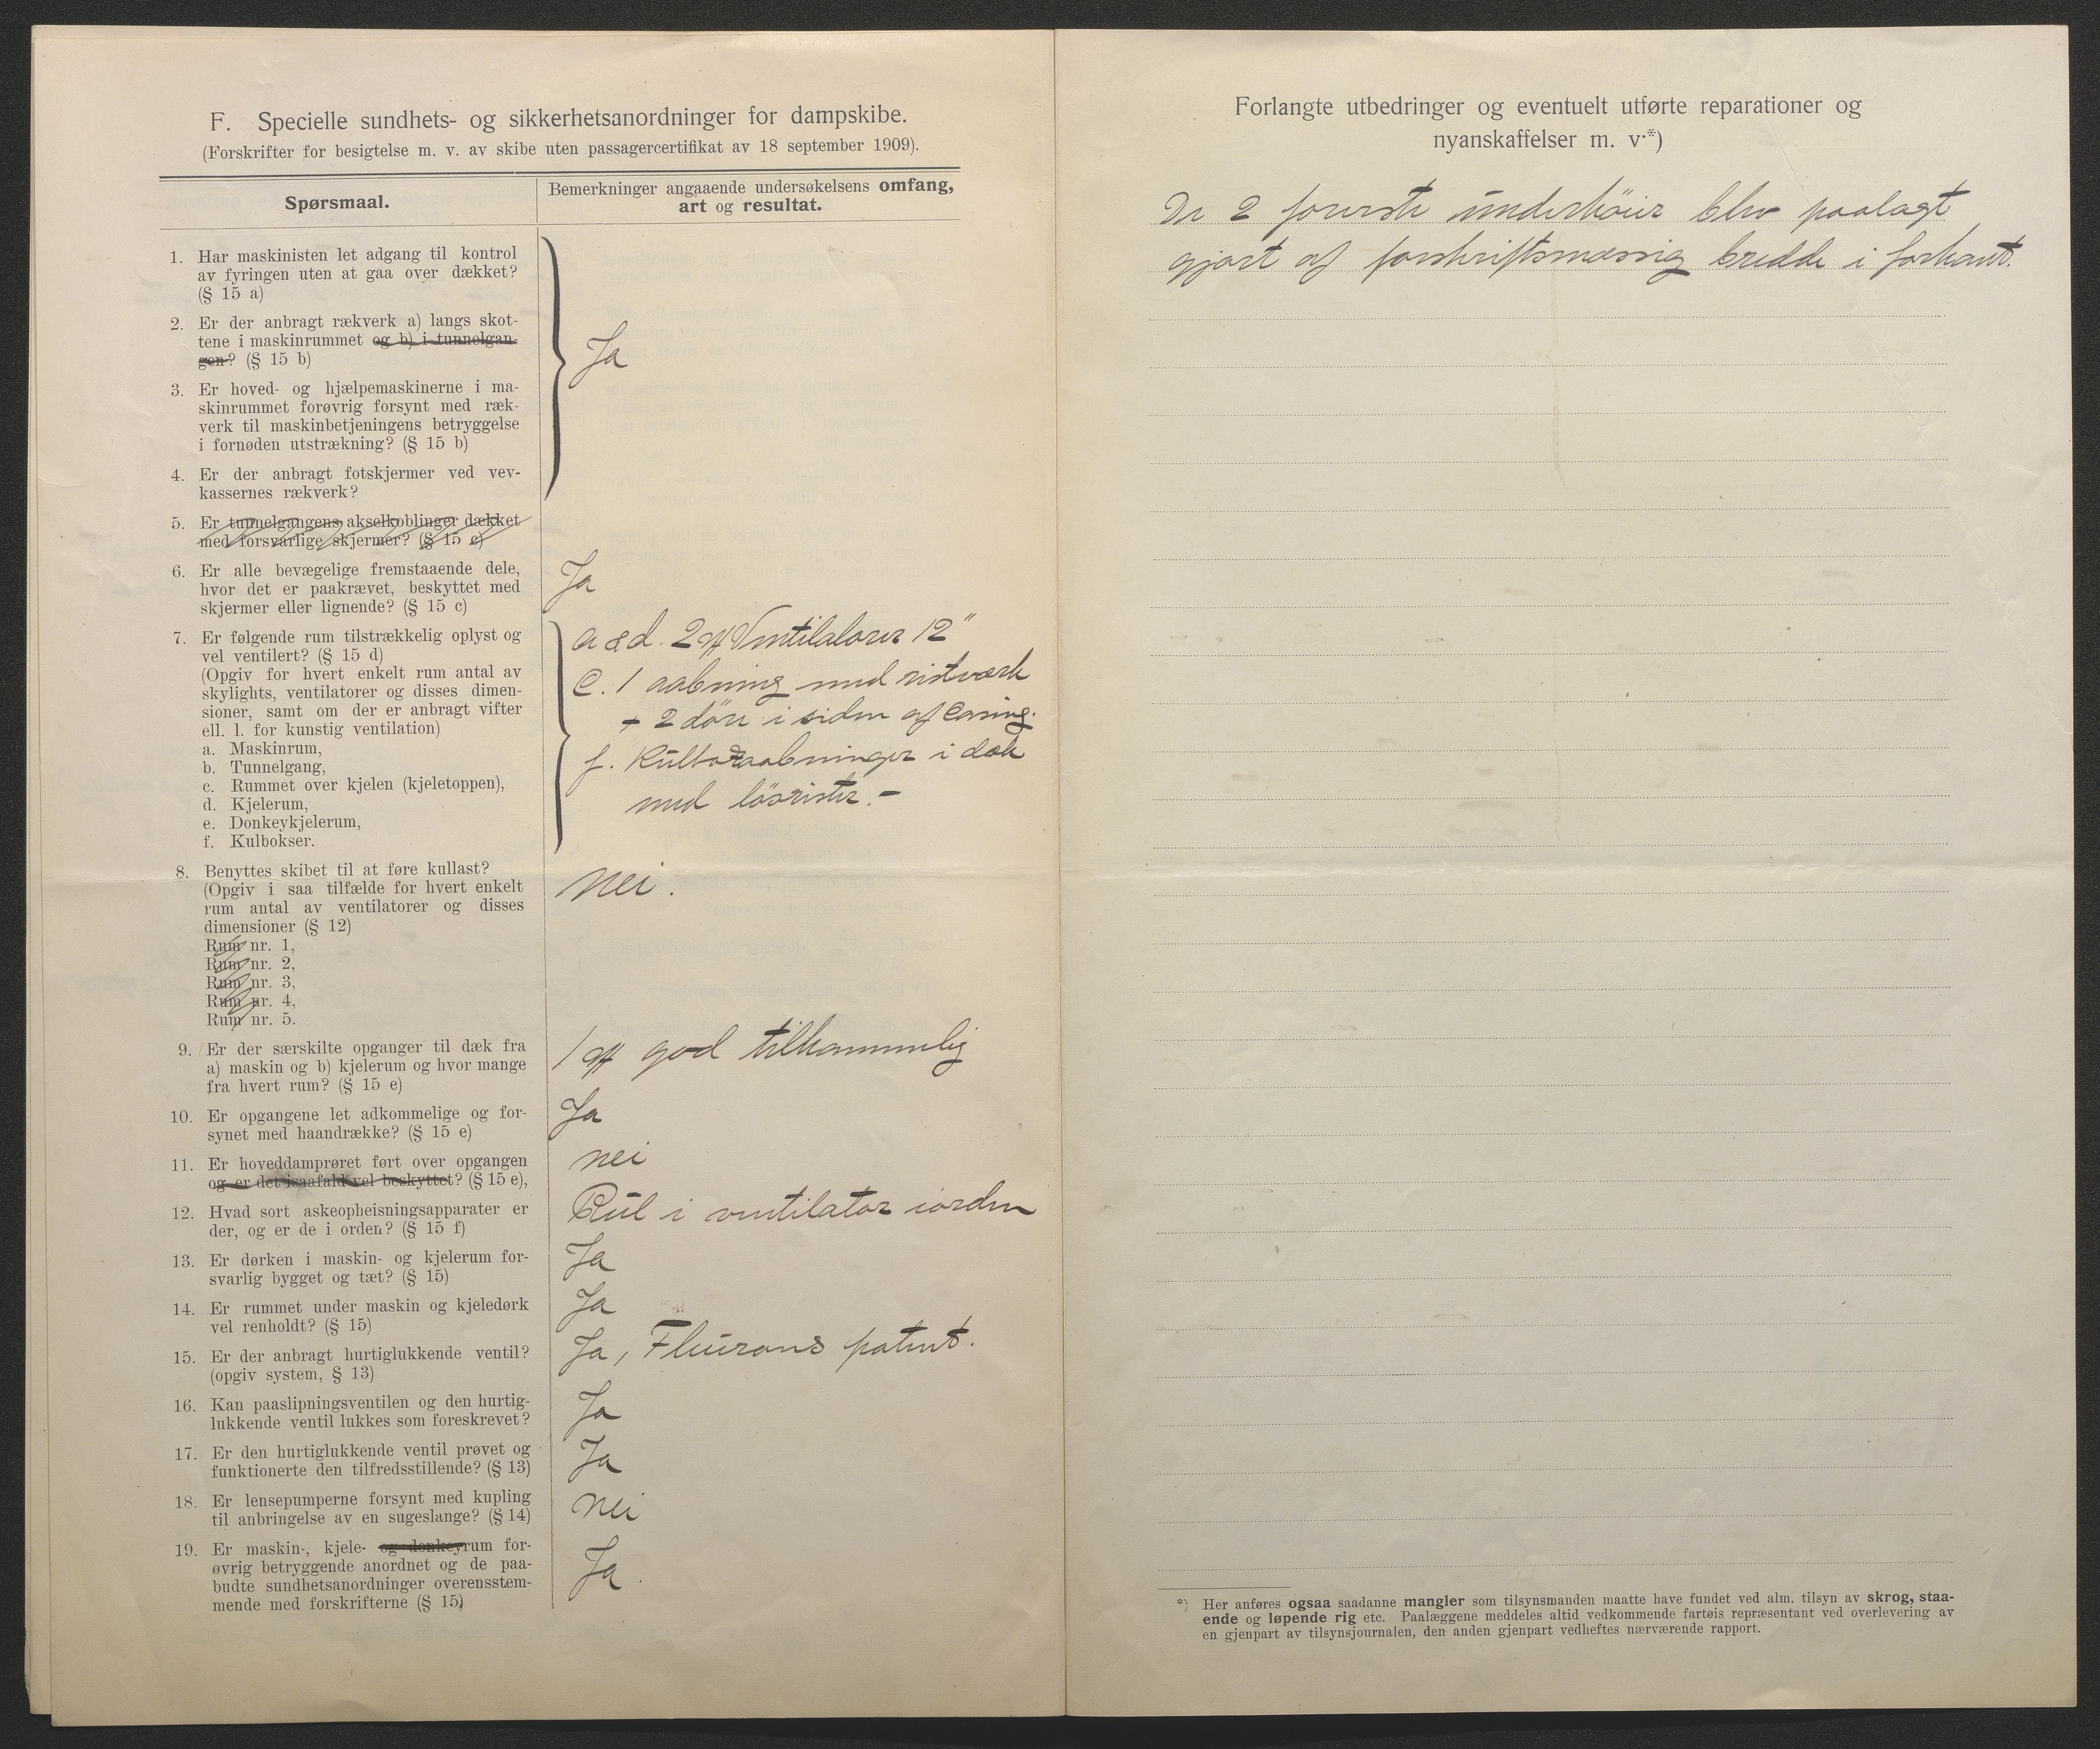 F. Specielle sundhets- og sikkerhetsanordninger for dampskibe.
(Forskrifter for besigtelse m. v. av skibe uten passagercertifikat av 18 september 1909).
Spørsmaal.
Bemerkninger angaaende undersøkelsens omfang,
art og resultat.
1. Har maskinisten let adgang til kontrol
av fyringen uten at gaa over dækket?
(§ 15 a)
2. Er der anbragt rækverk a) langs skot-
tene i maskinrummet og b) i tunnelgan-
gen? (§ 15 b)
Ja
3. Er hoved- og hjælpemaskinerne i ma-
skinrummet forøvrig forsynt med ræk-
verk til maskinbetjeningens betryggelse
i fornøden utstrækning? (§ 15 b)
4. Er der anbragt fotskjermer ved vev-
kassernes rækverk?
5. Er tunnelgangens akselkoblinger dækket
med forsvarlige skjermer? (§ 15 c)
6. Er alle bevægelige fremstaaende dele,
hvor det er paakrævet, beskyttet med
skjermer eller lignende? (§ 15 c)
Ja
7. Er følgende rum tilstrækkelig oplyst og
vel ventilert? (§ 15 d)
(Opgiv for hvert enkelt rum antal av
skylights, ventilatorer og disses dimen-
sioner, samt om der er anbragt vifter
ell. l. for kunstig ventilation)
a. Maskinrum,
b. Tunnelgang,
c. Rummet over kjelen (kjeletoppen),
d. Kjelerum,
e. Donkeykjelerum,
f. Kulbokser.
a & d. 2 Ventilatorer 12"
C. 1 aabning med ristværk
+ 2 döre i siden af Casing.
f. Kulboxaabninger i dæk
med lösrister. -
8. Benyttes skibet til at føre kullast?
(Opgiv i saa tilfælde for hvert enkelt
rum antal av ventilatorer og disses
dimensioner (§ 12)
Rum nr. 1,
Rum nr. 2,
Rum nr. 3,
Rum nr. 4,
Rum nr. 5.
Nei.
9. Er der særskilte opganger til dæk fra
a) maskin og b) kjelerum og hvor mange
fra hvert rum? (§ 15 e)
1 god
10. Er opgangene let adkommelige og for-
synet med haandrække? (§ 15 e)
Ja
11. Er hoveddamprøret ført over opgangen
og er det isaafald vel beskyttet? (§ 15 e),
nei
12. Hvad sort askeopheisningsapparater er
der, og er de i orden? (§ 15 f)
i ventilator iorden
13. Er dørken i maskin- og kjelerum for-
svarlig bygget og tæt? (§ 15)
Ja
14. Er rummet under maskin og kjeledørk
vel renholdt? (§ 15)
Ja
15. Er der anbragt hurtiglukkende ventil?
(opgiv system, § 13)
Ja, patent.
16. Kan paaslipningsventilen og den hurtig-
lukkende ventil lukkes som foreskrevet?
Ja
17. Er den hurtiglukkende ventil prøvet og
funktionerte den tilfredsstillende? (§ 13)
Ja
18. Er lensepumperne forsynt med kupling
til anbringelse av en sugeslange? (§ 14)
nei
19. Er maskin-, kjele- og donkeyrum for-
øvrig betryggende anordnet og de paa-
budte sundhetsanordninger overensstem-
mende med forskrifterne (§ 15)
Ja.
Forlangte utbedringer og eventuelt utførte reparationer og
nyanskaffelser m. v.*)
De 2 forerste underköier blev paalagt
gjort af forskriftsmæssig bredde i forkant.
*) Her anføres ogsaa saadanne mangler som tilsynsmanden maatte have fundet ved alm. tilsyn av skrog, staa-
ende og løpende rig etc. Paalæggene meddeles altid vedkommende fartøis repræsentant ved overlevering av
en gjenpart av tilsynsjournalen, den anden gjenpart vedheftes nærværende rapport.